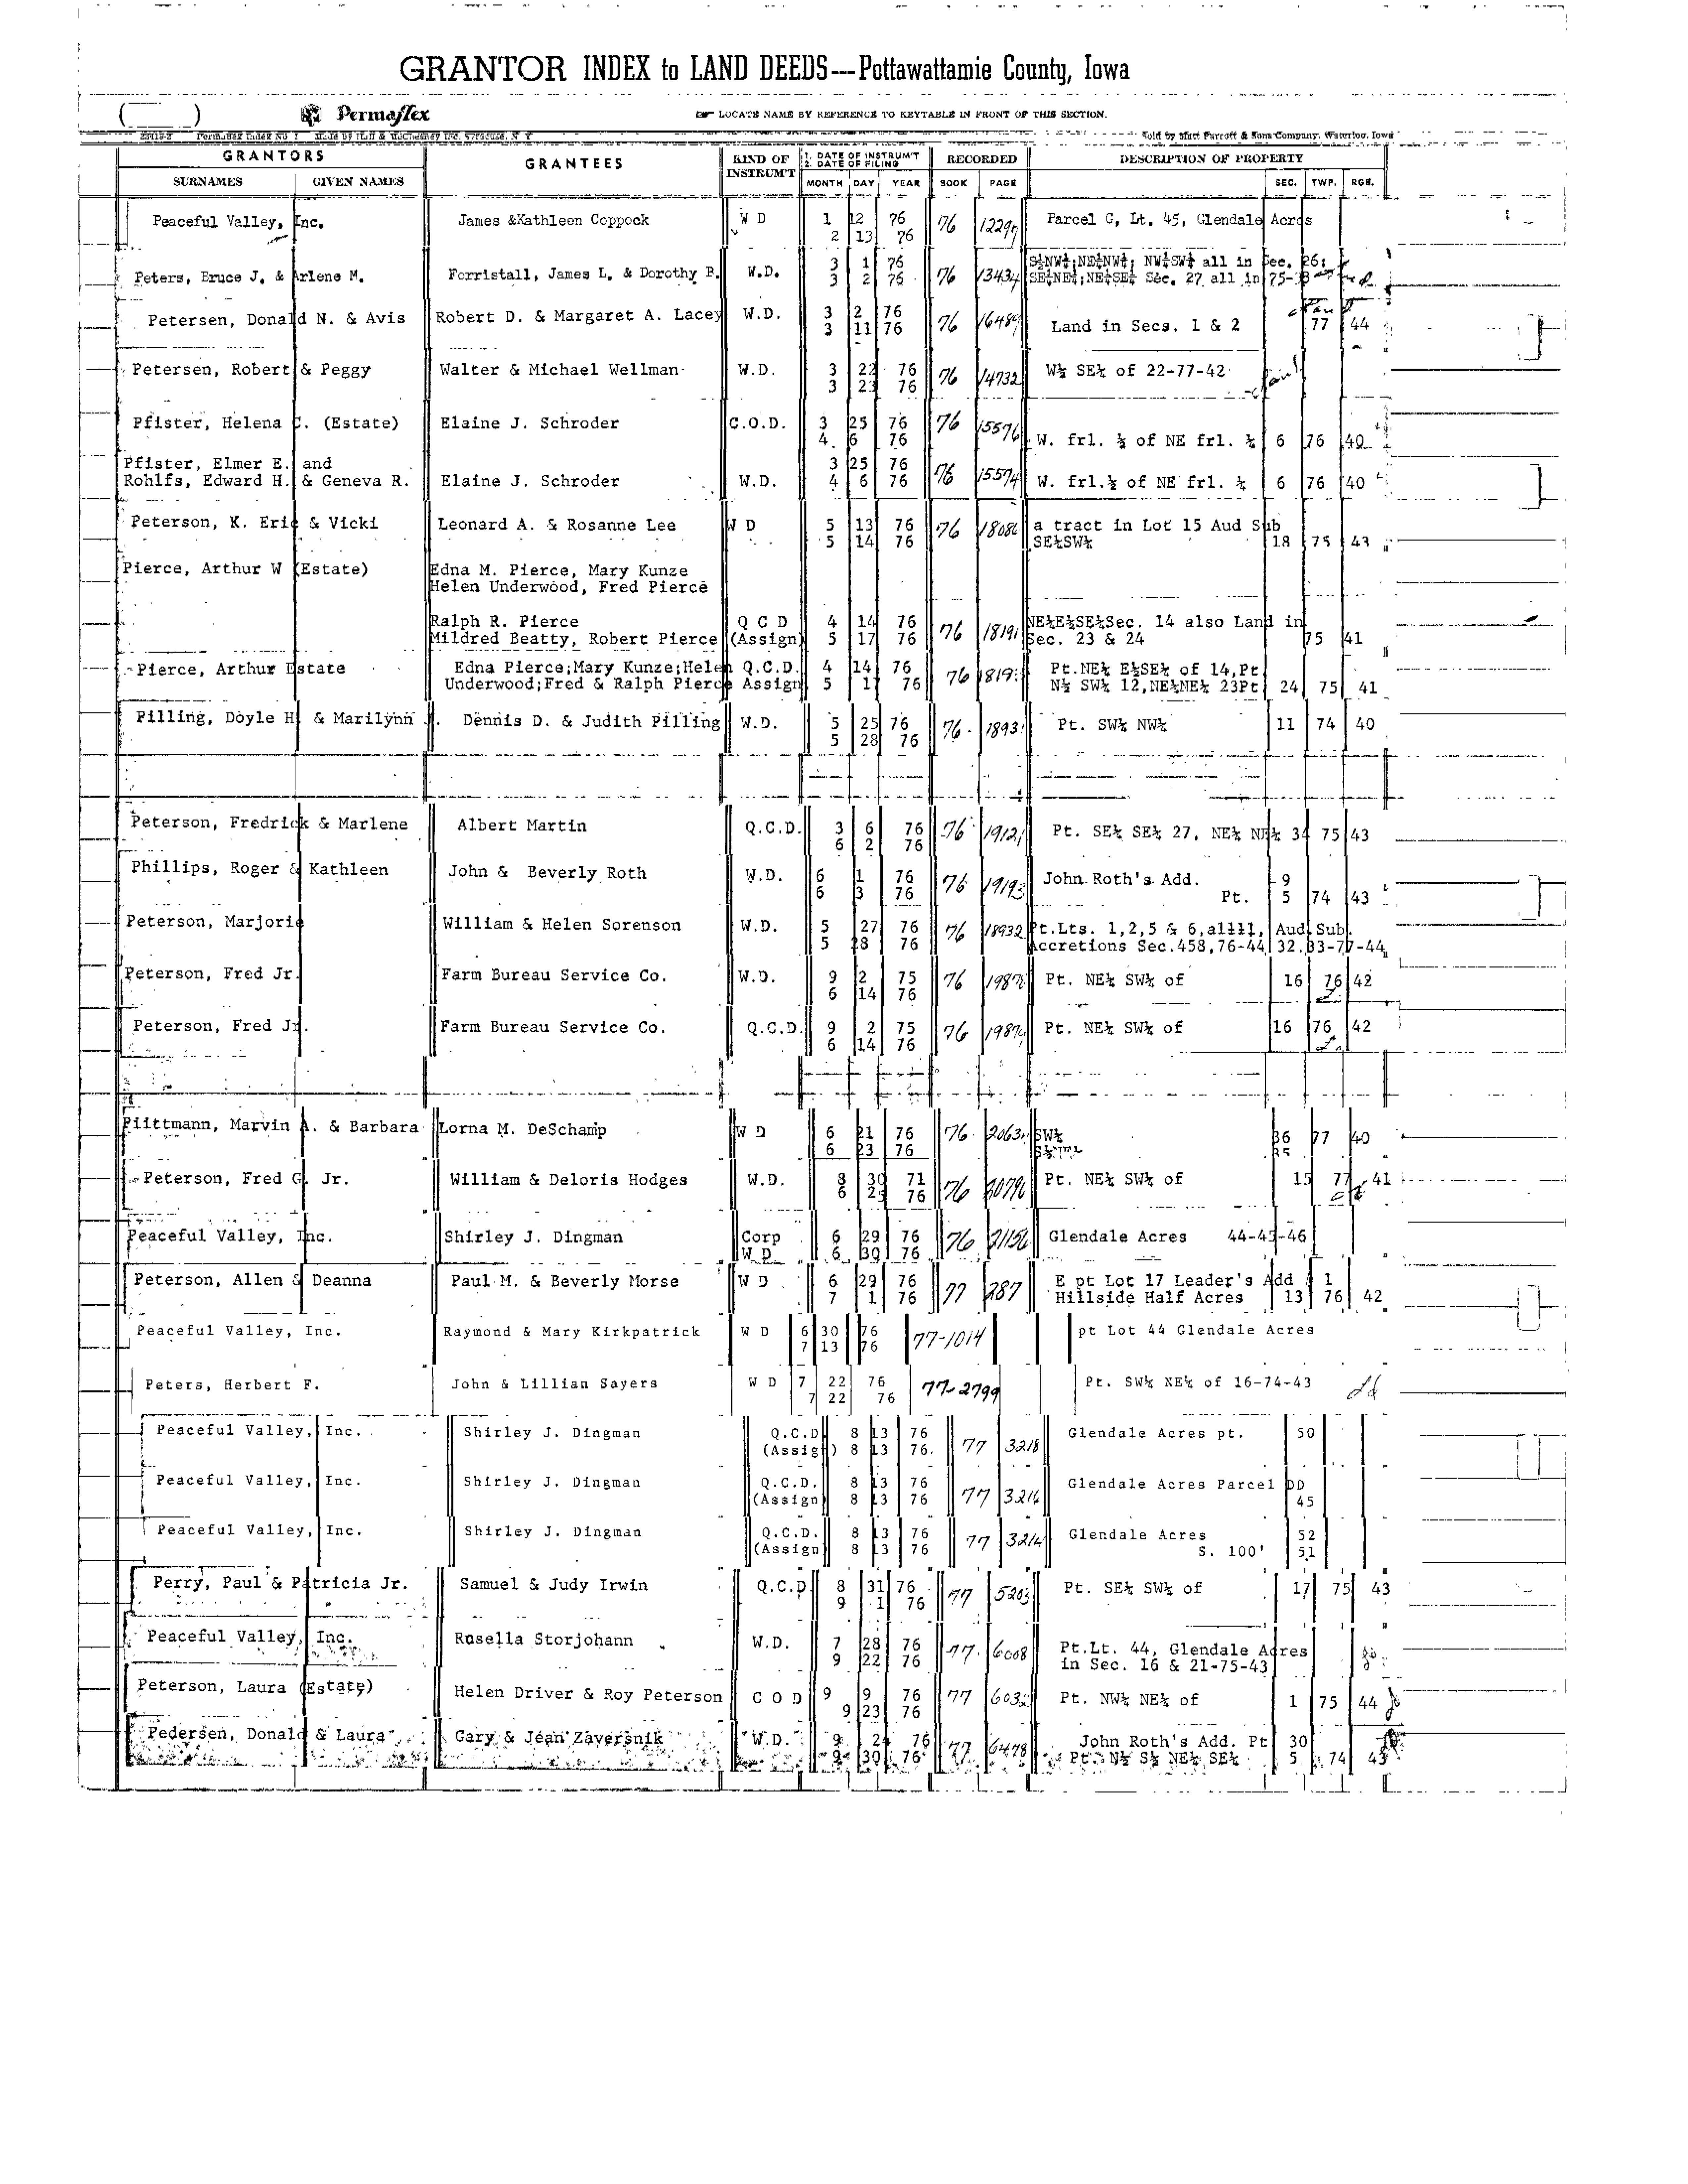 GRANTOR INDEX to LAND DEEDS---Pottawattamie County, Iowa
( ) Permaflex ☞ LOCATE NAME BY REFERENCE TO KEYTABLE IN FRONT OF THIS SECTION.
Sold by Matt Parrott & Sons Company, Waterloo, Iowa
GRANTORS GRANTEES KIND OF INSTRUM'T 1. DATE OF INSTRUM'T 2. DATE OF FILING RECORDED DESCRIPTION OF PROPERTY
SURNAMES GIVEN NAMES MONTH DAY YEAR BOOK PAGE SEC. TWP. RGE.
Peaceful Valley, Inc. James &Kathleen Coppock W D 1 12 76 76 Parcel G, Lt. 45, Glendale Acres
2 13 76
Peters, Bruce J. & Arlene M. Forristall, James L. & Dorothy B. W.D. 3 1 76 76 13434 S½NW¼;NE¼NW¼; NW¼SW¼ all in Sec. 26;
3 2 76 SE¼NE¼;NE¼SE¼ Sec. 27 all in 75-
Petersen, Donald N. & Avis Robert D. & Margaret A. Lacey W.D. 3 2 76 76 Land in Secs. 1 & 2 77 44
3 11 76
Petersen, Robert & Peggy Walter & Michael Wellman W.D. 3 22 76 76 14732 W½ SE¼ of 22-77-42
3 23 76
Pfister, Helena C. (Estate) Elaine J. Schroder C.O.D. 3 25 76 76 15576
4 6 76 W. frl. ½ of NE frl. ¼ 6 76 40
Pfister, Elmer E. and 3 25 76
Rohlfs, Edward H. & Geneva R. Elaine J. Schroder W.D. 4 6 76 76 15574 W. frl.½ of NE frl. ¼ 6 76 40
Peterson, K. Eric & Vicki Leonard A. & Rosanne Lee W D 5 13 76 76 a tract in Lot 15 Aud Sub
5 14 76 SE¼SW¼ 18 75 43
Pierce, Arthur W (Estate) Edna M. Pierce, Mary Kunze
Helen Underwood, Fred Pierce
Ralph R. Pierce Q C D 4 14 76 76 NE¼E½SE¼Sec. 14 also Land in
Mildred Beatty, Robert Pierce (Assign) 5 17 76 Sec. 23 & 24 75 41
Pierce, Arthur Estate Edna Pierce;Mary Kunze;Helen Q.C.D. 4 14 76 76 Pt.NE¼ E½SE¼ of 14,Pt
Underwood;Fred & Ralph Pierce Assign 5 76 N½ SW¼ 12,NE¼NE¼ 23Pt 24 75 41
Pilling, Doyle H & Marilynn J. Dennis D. & Judith Pilling W.D. 5 25 76 76 Pt. SW¼ NW¼ 11 74 40
5 28 76
Peterson, Fredrick & Marlene Albert Martin Q.C.D. 3 6 76 76 Pt. SE¼ SE¼ 27, NE¼ NE¼ 34 75 43
6 2 76
Phillips, Roger & Kathleen John & Beverly Roth W.D. 6 1 76 76 John Roth's Add. 9
6 3 76 Pt. 5 74 43
Peterson, Marjorie William & Helen Sorenson W.D. 5 27 76 76 18932 Pt.Lts. 1,2,5 & 6,all11, Aud Sub.
5 28 76 Accretions Sec.458,76-44 32.33-77-44
Peterson, Fred Jr. Farm Bureau Service Co. W.D. 9 2 75 76 Pt. NE¼ SW¼ of 16 76 42
6 14 76
Peterson, Fred Jr. Farm Bureau Service Co. Q.C.D. 9 2 75 76 Pt. NE¼ SW¼ of 16 76 42
6 14 76
Piittmann, Marvin A. & Barbara Lorna M. DeSchamp W D 6 21 76 76 SW¼ 36 77 40
6 23 76
Peterson, Fred G. Jr. William & Deloris Hodges W.D. 8 30 71 76 Pt. NE¼ SW¼ of 15 77 41
6 25 76
Peaceful Valley, Inc. Shirley J. Dingman Corp 6 29 76 76 21156 Glendale Acres 44-45-46
W D 6 30 76
Peterson, Allen & Deanna Paul M. & Beverly Morse W D 6 29 76 77 287 E pt Lot 17 Leader's Add 1
7 1 76 Hillside Half Acres 13 76 42
Peaceful Valley, Inc. Raymond & Mary Kirkpatrick W D 6 30 76 77-1014 pt Lot 44 Glendale Acres
7 13 76
Peters, Herbert F. John & Lillian Sayers W D 7 22 76 77-2799 Pt. SW¼ NE¼ of 16-74-43
7 22 76
Peaceful Valley, Inc. Shirley J. Dingman Q.C.D 8 13 76 77 3218 Glendale Acres pt. 50
(Assign) 8 13 76.
Peaceful Valley, Inc. Shirley J. Dingman Q.C.D. 8 13 76 77 3216 Glendale Acres Parcel DD
(Assign 8 13 76 45
Peaceful Valley, Inc. Shirley J. Dingman Q.C.D. 8 13 76 77 3214 Glendale Acres 52
(Assign) 8 13 76 S. 100' 51
Perry, Paul & Patricia Jr. Samuel & Judy Irwin Q.C.D 8 31 76 77 5203 Pt. SE¼ SW¼ of 17 75 43
9 1 76
Peaceful Valley, Inc. Rosella Storjohann W.D. 7 28 76 77 6008 Pt.Lt. 44, Glendale Acres
9 22 76 in Sec. 16 & 21-75-43
Peterson, Laura (Estate) Helen Driver & Roy Peterson C O D 9 9 76 77 Pt. NW¼ NE¼ of 1 75 44
9 23 76
Pedersen, Donald & Laura Gary & Jean Zaversnik W.D. 9 24 76 77 6478 John Roth's Add. Pt 30
9 30 76 Pt. N½ S½ NE¼ SE¼ 5 74 43